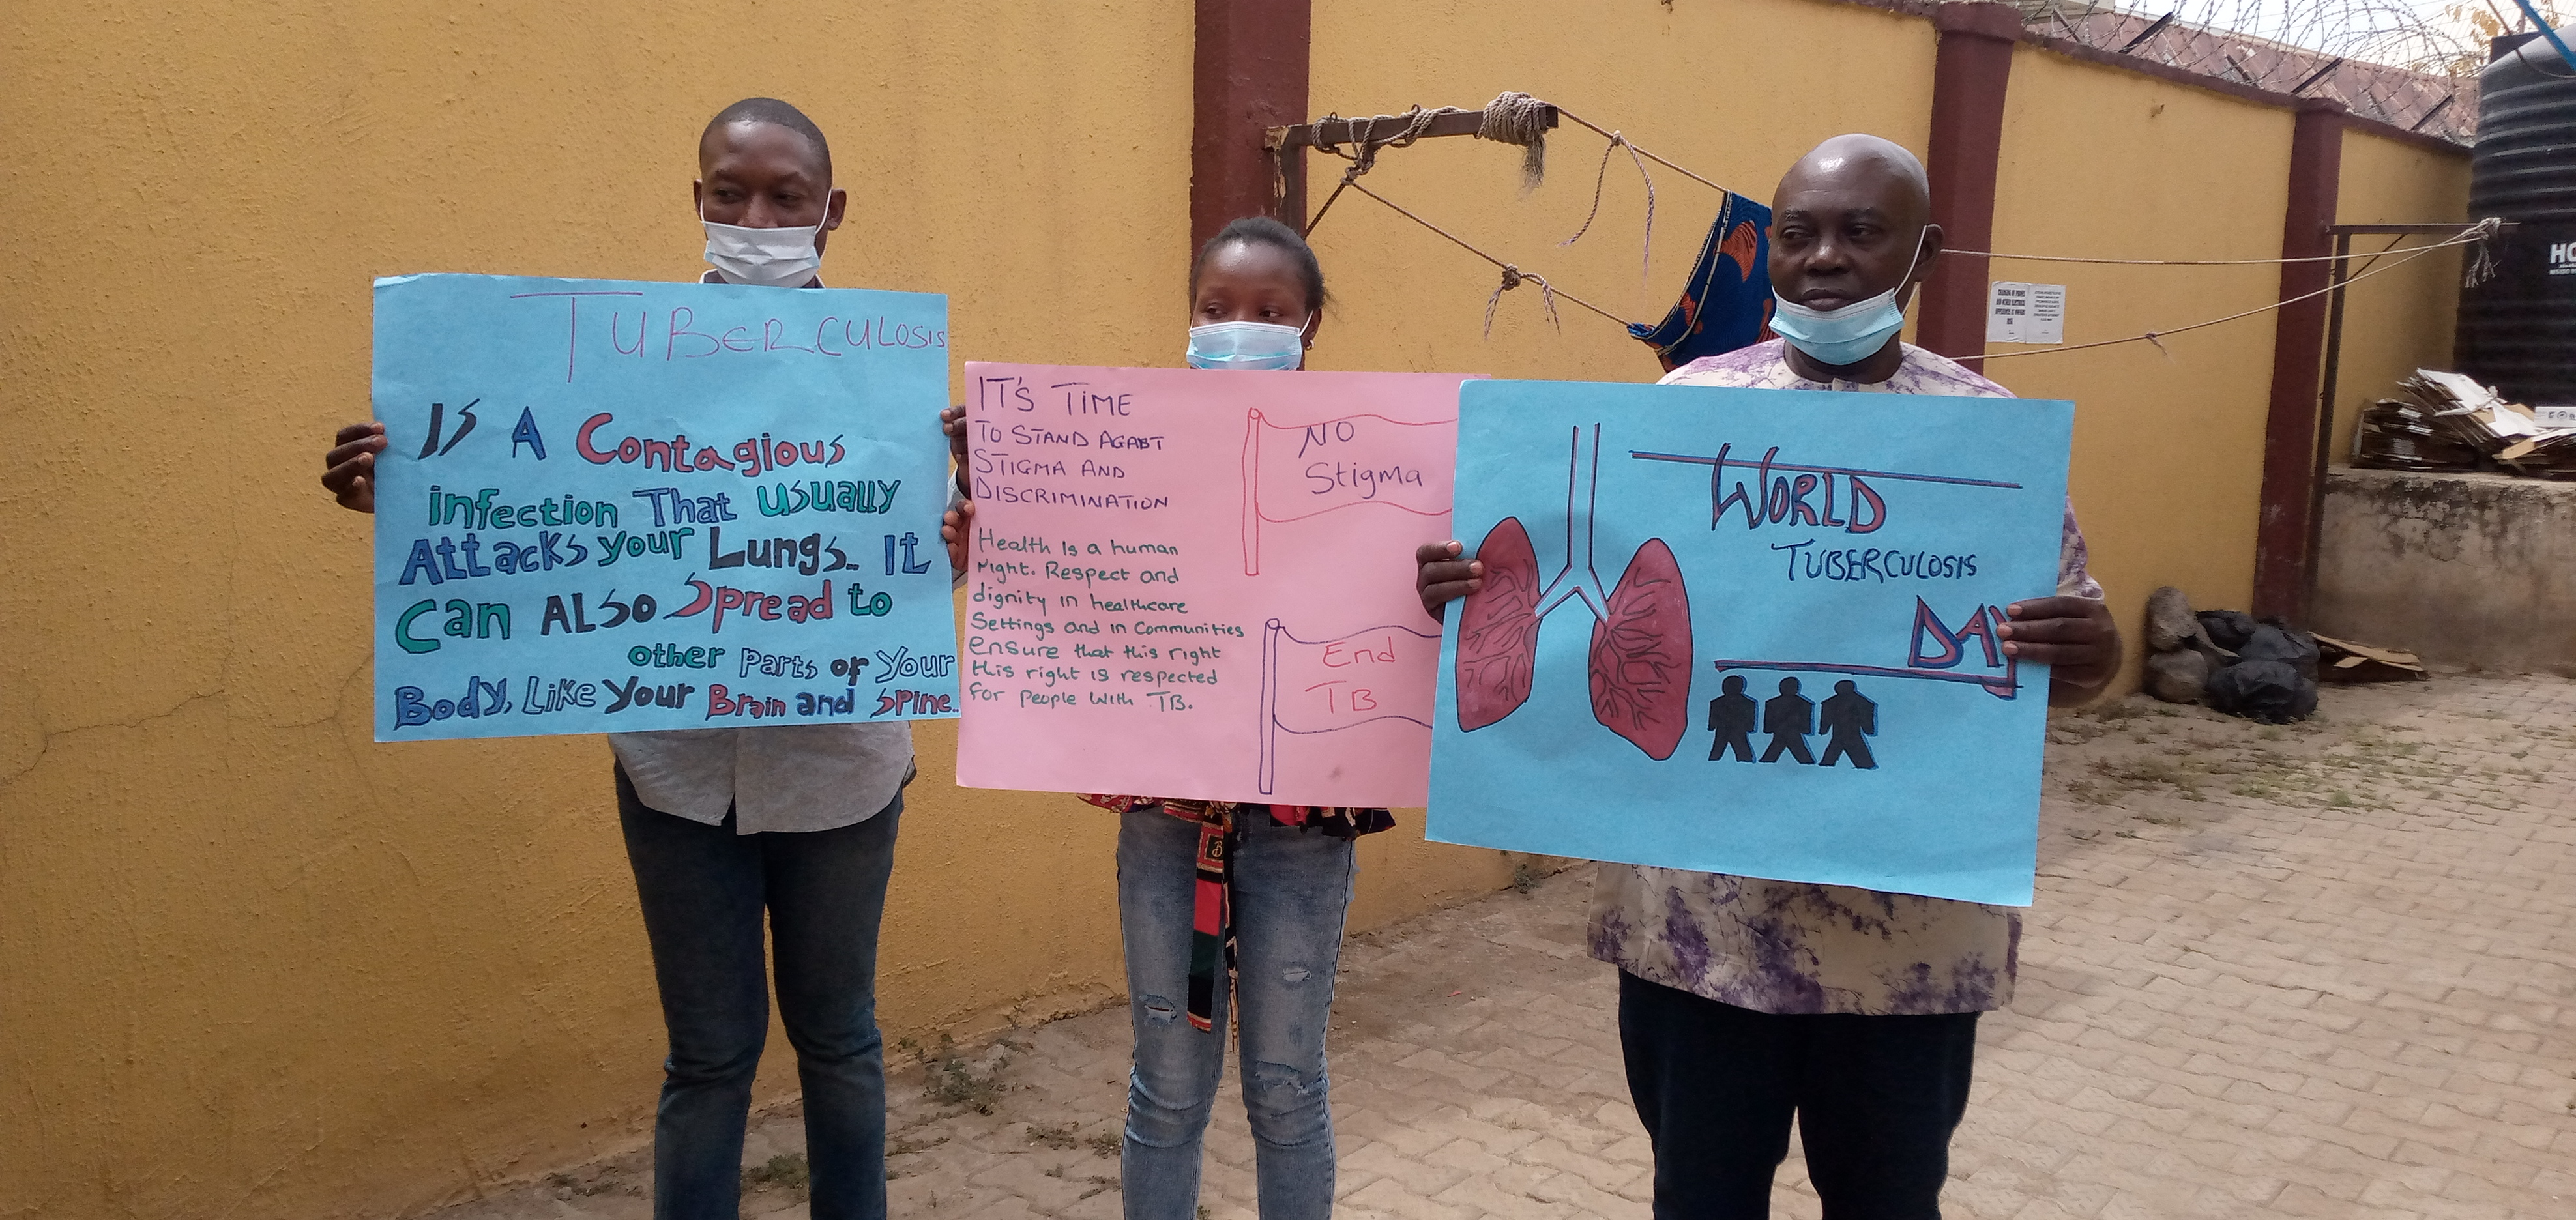 TUBERCULOSIS
IS A Contagious
infection That usually
Attacks your Lungs.. It
can ALSO Spread to
other parts of your
Body, Like your Brain and Spine..
IT'S TIME
TO STAND AGABT
STIGMA AND
DISCRIMINATION
Health is a human
right. Respect and
dignity in healthcare
Settings and in Communities
ensure that this right
this right is respected
for people with TB.
NO
Stigma
End
TB
WORLD
TUBERCULOSIS
DAY